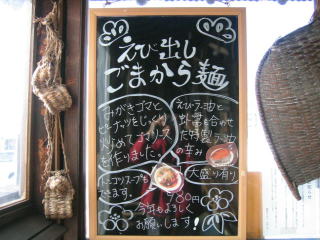 えび出し
ごまから麺
みがきゴマと
ピーナッツをじっくり
炒めてゴマソース
を作りました。
えび・ラー油と
を合わせ
た特製ラー油
の辛み
大盛り有り
トンコツスープも
できます。
980円
今年もよろしく
お願いします!